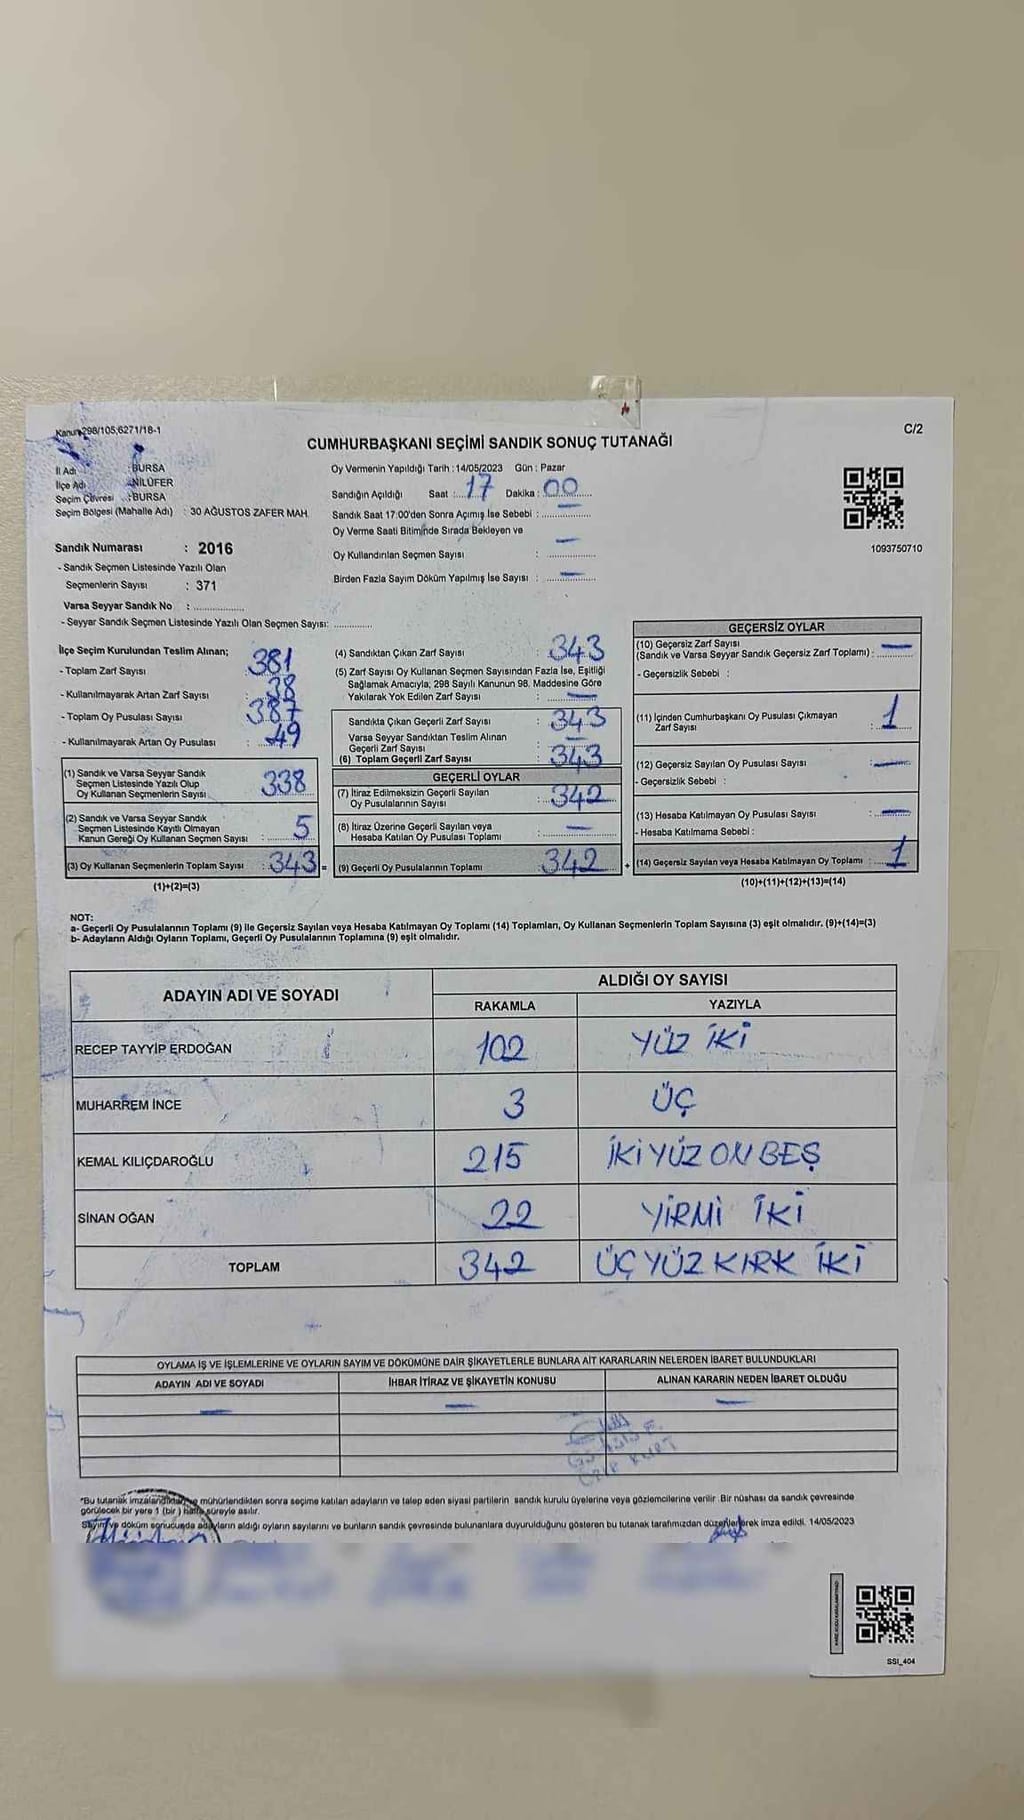 Kanun 298/105,6271/18-1
C/2
CUMHURBAŞKANI SEÇİMİ SANDIK SONUÇ TUTANAĞI
İl Adı : BURSA
İlçe Adı : NİLÜFER
Seçim Çevresi : BURSA
Seçim Bölgesi (Mahalle Adı) : 30 AĞUSTOS ZAFER MAH.
Oy Vermenin Yapıldığı Tarih : 14/05/2023 Gün : Pazar
Sandığın Açıldığı Saat : 17 Dakika : 00
Sandık Saat 17:00'den Sonra Açımış İse Sebebi : —
Oy Verme Saati Bitiminde Sırada Bekleyen ve
Oy Kullandırılan Seçmen Sayısı : —
Birden Fazla Sayım Döküm Yapılmış İse Sayısı : —
1093750710
Sandık Numarası : 2016
- Sandık Seçmen Listesinde Yazılı Olan
Seçmenlerin Sayısı : 371
Varsa Seyyar Sandık No : ..................
- Seyyar Sandık Seçmen Listesinde Yazılı Olan Seçmen Sayısı: .............
İlçe Seçim Kurulundan Teslim Alınan;
- Toplam Zarf Sayısı : 381
- Kullanılmayarak Artan Zarf Sayısı : 38
- Toplam Oy Pusulası Sayısı : 387
- Kullanılmayarak Artan Oy Pusulası : 49
(1) Sandık ve Varsa Seyyar Sandık
Seçmen Listesinde Yazılı Olup
Oy Kullanan Seçmenlerin Sayısı : 338
(2) Sandık ve Varsa Seyyar Sandık
Seçmen Listesinde Kayıtlı Olmayan
Kanun Gereği Oy Kullanan Seçmen Sayısı : 5
(3) Oy Kullanan Seçmenlerin Toplam Sayısı : 343 =
(1)+(2)=(3)
(4) Sandıktan Çıkan Zarf Sayısı : 343
(5) Zarf Sayısı Oy Kullanan Seçmen Sayısından Fazla İse, Eşitliği
Sağlamak Amacıyla; 298 Sayılı Kanunun 98. Maddesine Göre
Yakılarak Yok Edilen Zarf Sayısı : —
Sandıkta Çıkan Geçerli Zarf Sayısı : 343
Varsa Seyyar Sandıktan Teslim Alınan
Geçerli Zarf Sayısı : —
(6) Toplam Geçerli Zarf Sayısı : 343
GEÇERLİ OYLAR
(7) İtiraz Edilmeksizin Geçerli Sayılan
Oy Pusulalarının Sayısı : 342
(8) İtiraz Üzerine Geçerli Sayılan veya
Hesaba Katılan Oy Pusulası Toplamı : —
(9) Geçerli Oy Pusulalarının Toplamı : 342 +
GEÇERSİZ OYLAR
(10) Geçersiz Zarf Sayısı
(Sandık ve Varsa Seyyar Sandık Geçersiz Zarf Toplamı) : —
- Geçersizlik Sebebi :
(11) İçinden Cumhurbaşkanı Oy Pusulası Çıkmayan
Zarf Sayısı : 1
(12) Geçersiz Sayılan Oy Pusulası Sayısı : —
- Geçersizlik Sebebi :
(13) Hesaba Katılmayan Oy Pusulası Sayısı : —
- Hesaba Katılmama Sebebi :
(14) Geçersiz Sayılan veya Hesaba Katılmayan Oy Toplamı : 1
(10)+(11)+(12)+(13)=(14)
NOT:
a- Geçerli Oy Pusulalarının Toplamı (9) ile Geçersiz Sayılan veya Hesaba Katılmayan Oy Toplamı (14) Toplamları, Oy Kullanan Seçmenlerin Toplam Sayısına (3) eşit olmalıdır. (9)+(14)=(3)
b- Adayların Aldığı Oyların Toplamı, Geçerli Oy Pusulalarının Toplamına (9) eşit olmalıdır.
ADAYIN ADI VE SOYADI
ALDIĞI OY SAYISI
RAKAMLA YAZIYLA
RECEP TAYYİP ERDOĞAN 102 YÜZ İKİ
MUHARREM İNCE 3 ÜÇ
KEMAL KILIÇDAROĞLU 215 İKİYÜZ ON BEŞ
SİNAN OĞAN 22 YİRMİ İKİ
TOPLAM 342 ÜÇ YÜZ KIRK İKİ
OYLAMA İŞ VE İŞLEMLERİNE VE OYLARIN SAYIM VE DÖKÜMÜNE DAİR ŞİKAYETLERLE BUNLARA AİT KARARLARIN NELERDEN İBARET BULUNDUKLARI
ADAYIN ADI VE SOYADI İHBAR İTİRAZ VE ŞİKAYETİN KONUSU ALINAN KARARIN NEDEN İBARET OLDUĞU
— — —
*Bu tutanak imzalandıktan ve mühürlendikten sonra seçime katılan adayların ve talep eden siyasi partilerin sandık kurulu üyelerine veya gözlemcilerine verilir. Bir nüshası da sandık çevresinde
görülecek bir yere 1 (bir) hafta süreyle asılır.
Sayım ve döküm sonucunda adayların aldığı oyların sayılarını ve bunların sandık çevresinde bulunanlara duyurulduğunu gösteren bu tutanak tarafımızdan düzenlenerek imza edildi. 14/05/2023
SSI_404